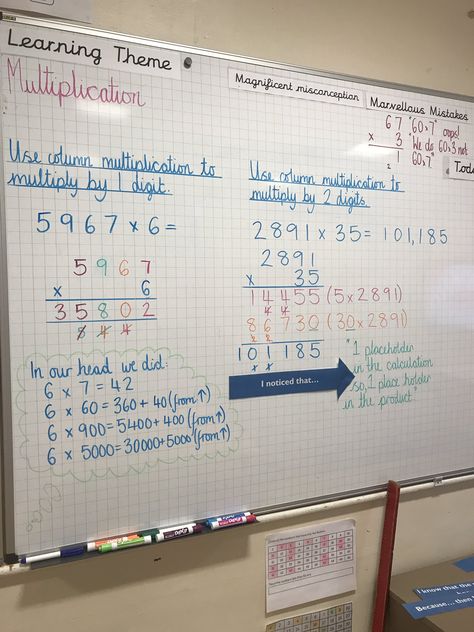 Learning Theme
Multiplication
Magnificent misconception
Marvellous Mistakes
67 "60x7" oops!
x 3 "We do 60x3 not
1 60x7"
2
Tod
Use column multiplication to
multiply by 1 digit.
5967 x 6 =
5967
x 6
35802
5 4 4
In our head we did:
6 x 7 = 42
6 x 60 = 360 + 40 (from ↑)
6 x 900 = 5400 + 400 (from ↑)
6 x 5000 = 30000 + 5000 (from ↑)
Use column multiplication to
multiply by 2 digits.
2891 x 35 = 101,185
2891
x 35
14455 (5 x 2891)
4 4
86730 (30 x 2891)
2 2
101185
1 1
I noticed that...
"1 placeholder
in the calculation
so, 1 place holder
in the product"
I know that the
Because... then